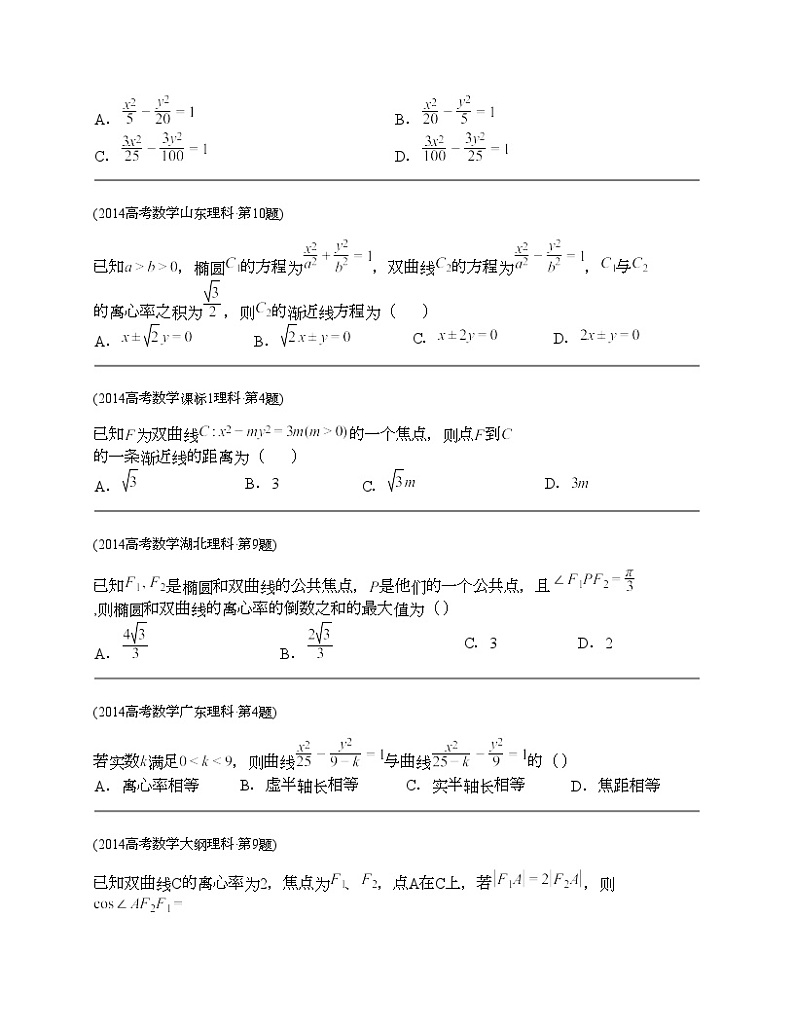 A. x²/5 - y²/20 = 1 B. x²/20 - y²/5 = 1
C. 3x²/25 - 3y²/100 = 1 D. 3x²/100 - 3y²/25 = 1
(2014高考数学山东理科·第10题)
已知a > b > 0，椭圆C₁的方程为x²/a² + y²/b² = 1，双曲线C₂的方程为x²/a² - y²/b² = 1，C₁与C₂
的离心率之积为√3/2，则C₂的渐近线方程为（ ）
A. x±√2y=0 B. √2x±y=0 C. x±2y=0 D. 2x±y=0
(2014高考数学课标1理科·第4题)
已知F为双曲线C:x²-my²=3m(m>0)的一个焦点，则点F到C
的一条渐近线的距离为（ ）
A. √3 B. 3 C. √3m D. 3m
(2014高考数学湖北理科·第9题)
已知F₁,F₂是椭圆和双曲线的公共焦点，P是他们的一个公共点，且∠F₁PF₂=π/3
,则椭圆和双曲线的离心率的倒数之和的最大值为（）
A. 4√3/3 B. 2√3/3 C. 3 D. 2
(2014高考数学广东理科·第4题)
若实数k满足0<k<9，则曲线x²/25 - y²/(9-k) = 1与曲线x²/(25-k) - y²/9 = 1的（）
A. 离心率相等 B. 虚半轴长相等 C. 实半轴长相等 D. 焦距相等
(2014高考数学大纲理科·第9题)
已知双曲线C的离心率为2，焦点为F₁、F₂，点A在C上，若|F₁A|=2|F₂A|，则
cos∠AF₂F₁=